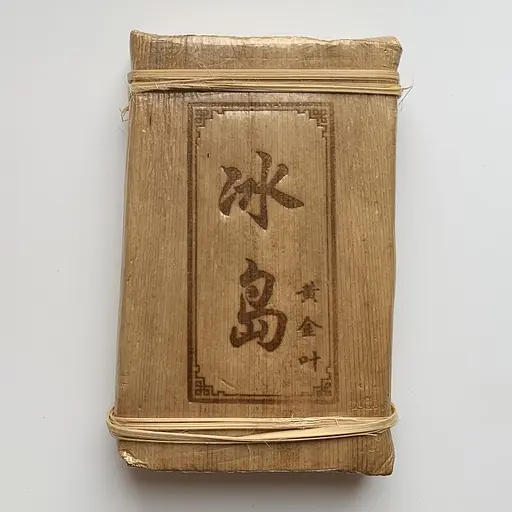 冰島
黃金叶